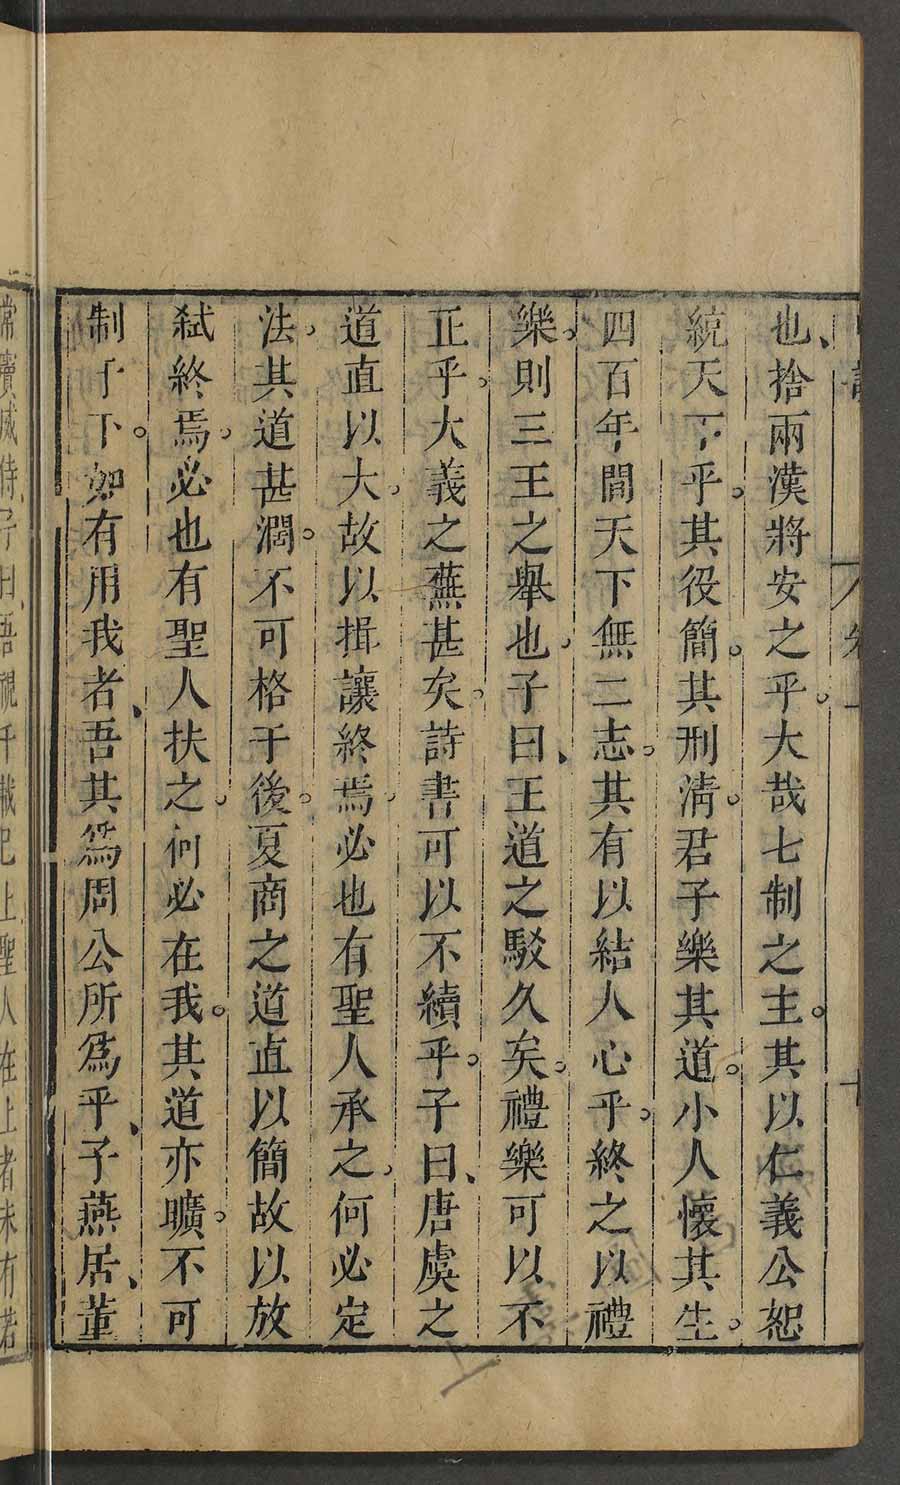 也捨兩漢將安之乎大哉七制之主其以仁義公恕
統天下乎其役簡其刑清君子樂其道小人懷其生
四百年間天下無二志其有以結人心乎終之以禮
樂則三王之舉也子曰王道之駁久矣禮樂可以不
正乎大義之蕪甚矣詩書可以不續乎子曰唐虞之
道直以大故以揖讓終焉必也有聖人承之何必定
法其道甚濶不可格于後夏商之道直以簡故以放
弒終焉必也有聖人扶之何必在我其道亦曠不可
制于下如有用我者吾其爲周公所爲乎子燕居董
常竇威侍子曰吾視千載已上聖人在上者未有若